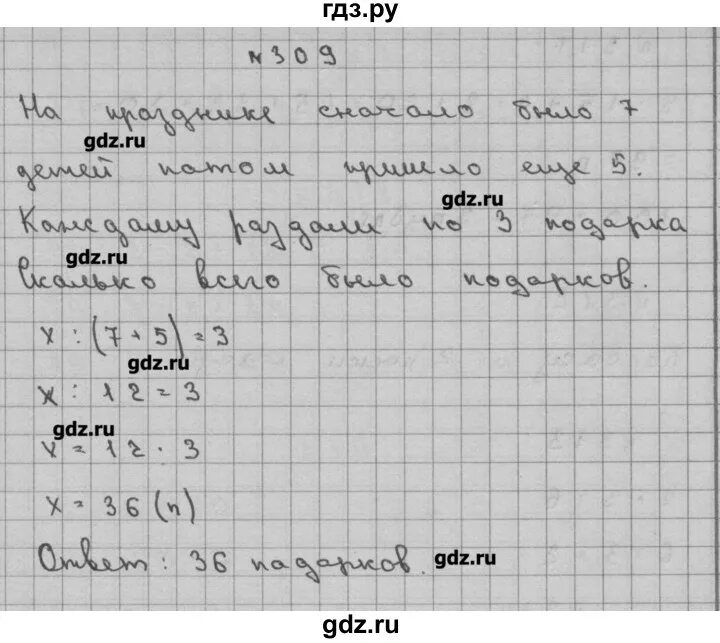 гдз.ру
№309
На празднике сначало было 7
gdz.ru
детей патом пришло еще 5.
gdz.ru
Каждаму раздали по 3 подарка
gdz.ru
Сколько всего было подарков.
x : (7 + 5) = 3
gdz.ru
x : 12 = 3
gdz.ru
x = 12 · 3
x = 36 (п)
Ответ: 36 падарков.
gdz.ru
gdz.ru